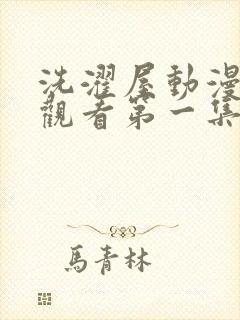 洗濯屋動漫
觀看第一集
馬青林